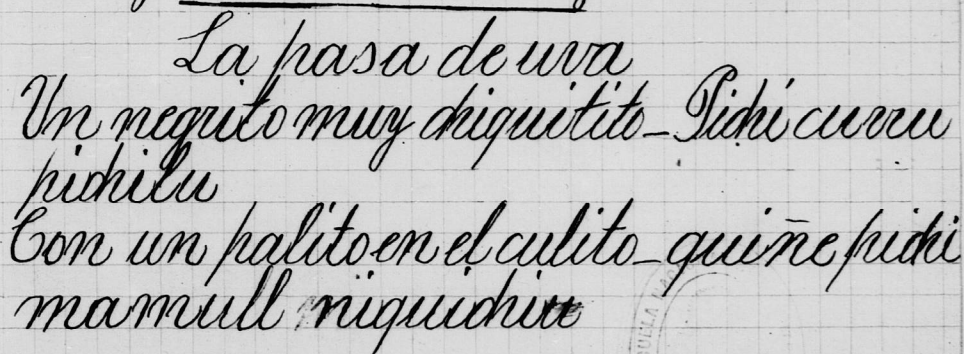 La pasa de uva
Un negrito muy chiquitito_Pichi curru
pichilu
Con un palito en el culito_quiñe pichi
mamull niquichiu